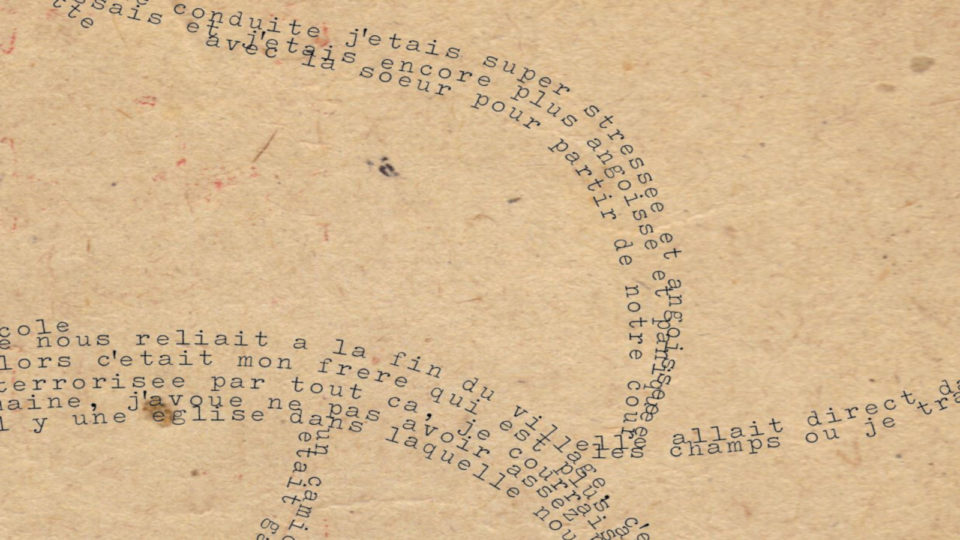 conduite j'etais super stressee et angoissee
et j'etais encore plus angoisse et
avec la soeur pour partir de notre
cole
nous reliait a la fin du village,
lors c'etait mon frere qui est plus
terrorisee par tout ca, je courrais
aine, j'avoue ne pas avoir assez
l y une eglise dans laquelle nou
elle allait direct
les champs ou je tra
un cami
etait ga